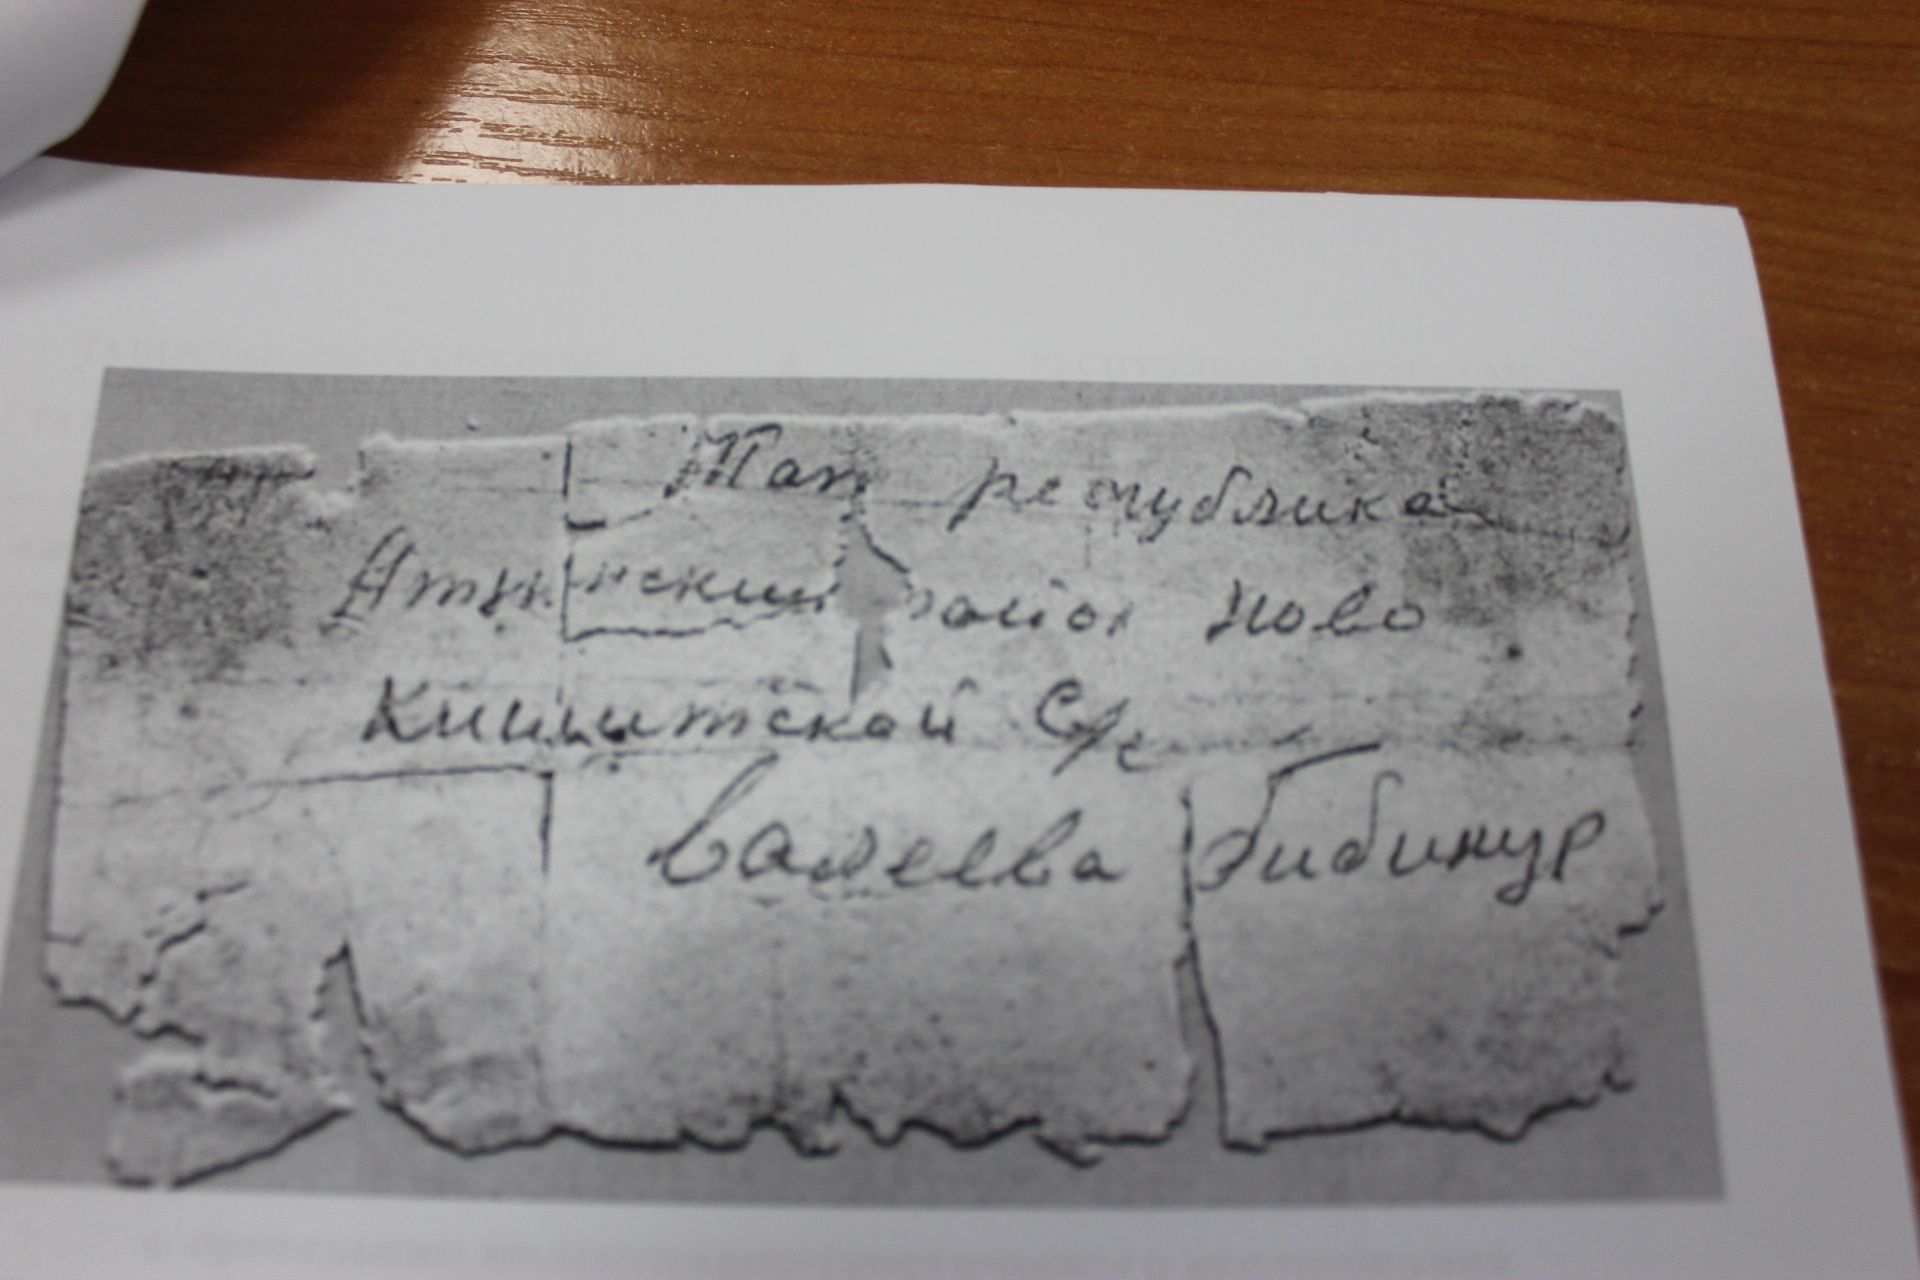 Тат республика
Атнинский район Ново
Кишитской С/с
Валеева Бибинур